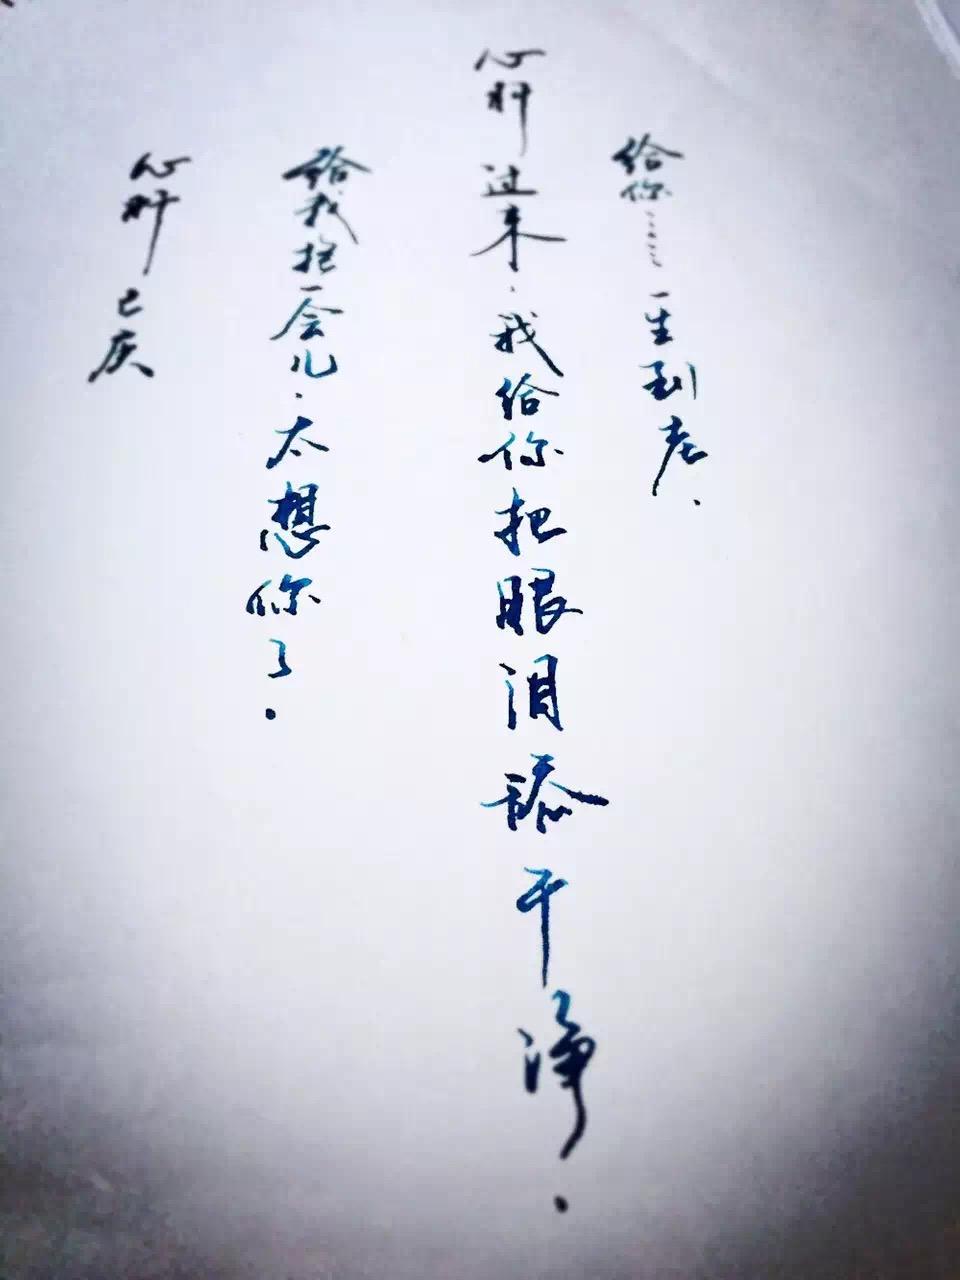 给你……一生到老.
心肝过来.我给你把眼泪舔干净.
给我抱一会儿.太想你了.
心肝